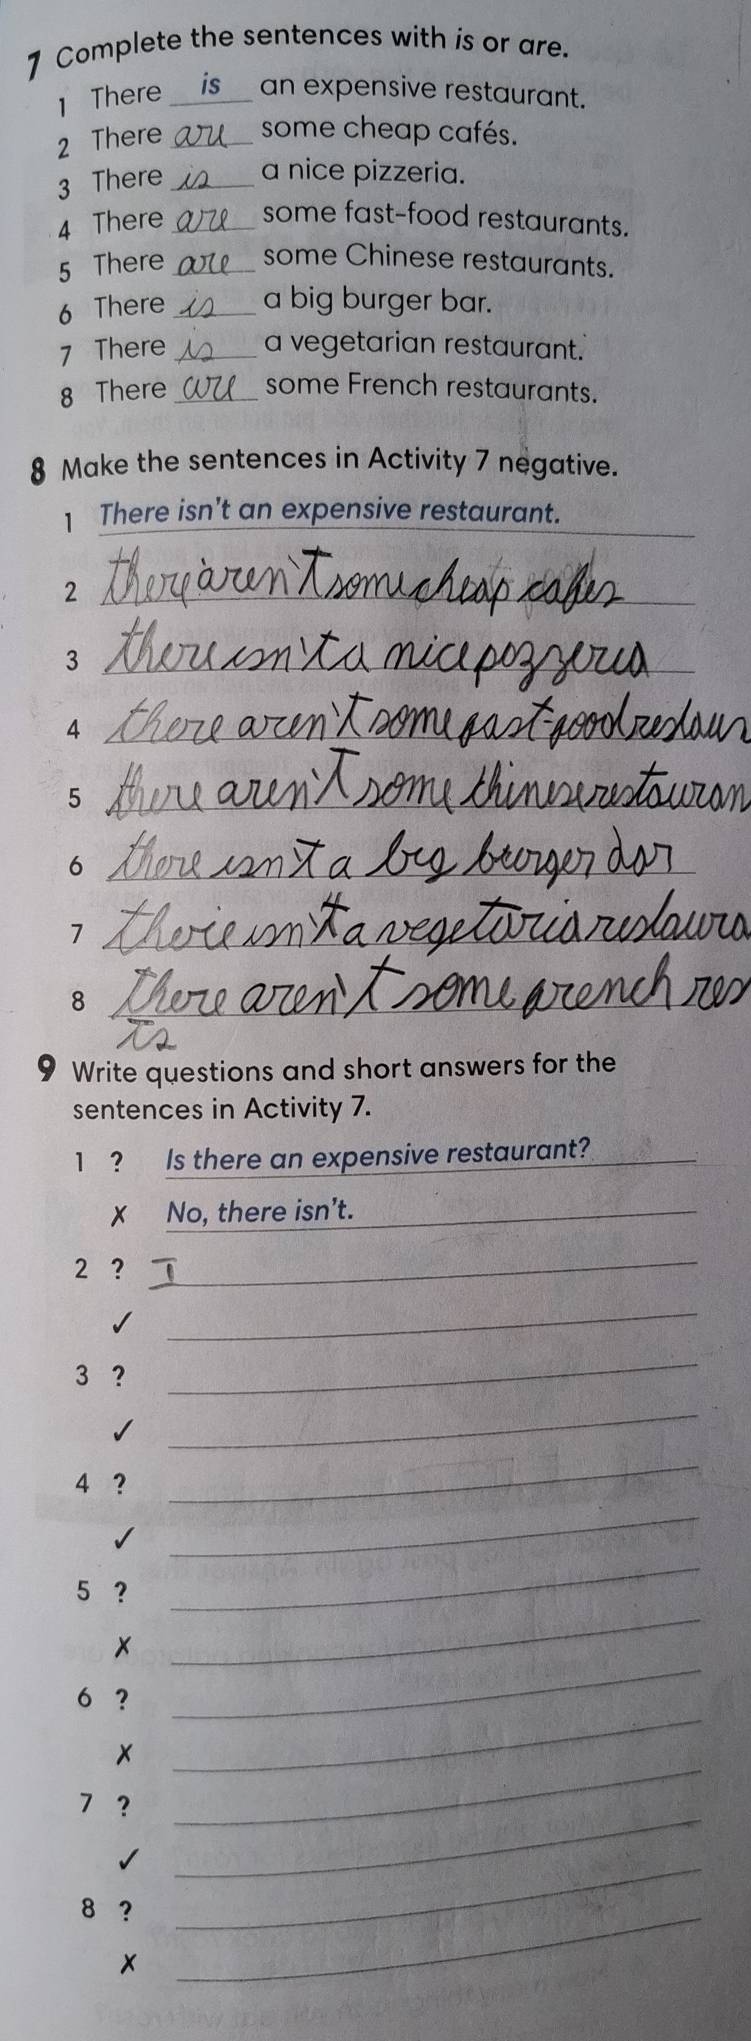 7 Complete the sentences with is or are.
1 There is an expensive restaurant.
2 There are some cheap cafés.
3 There is a nice pizzeria.
4 There are some fast-food restaurants.
5 There are some Chinese restaurants.
6 There is a big burger bar.
7 There is a vegetarian restaurant.
8 There are some French restaurants.
8 Make the sentences in Activity 7 negative.
1 There isn't an expensive restaurant.
2 there aren't some cheap cafes
3 there isn't a nice pozzeria
4 there aren't some fast-food restaur
5 there aren't some chinese restauran
6 there isn't a big burger bar
7 there isn't a vegetaria restaura
8 there aren't some french res
ts
9 Write questions and short answers for the
sentences in Activity 7.
1 ? Is there an expensive restaurant?
✗ No, there isn't.
2 ? I
✓
3 ?
✓
4 ?
✓
5 ?
✗
6 ?
✗
7 ?
✓
8 ?
✗